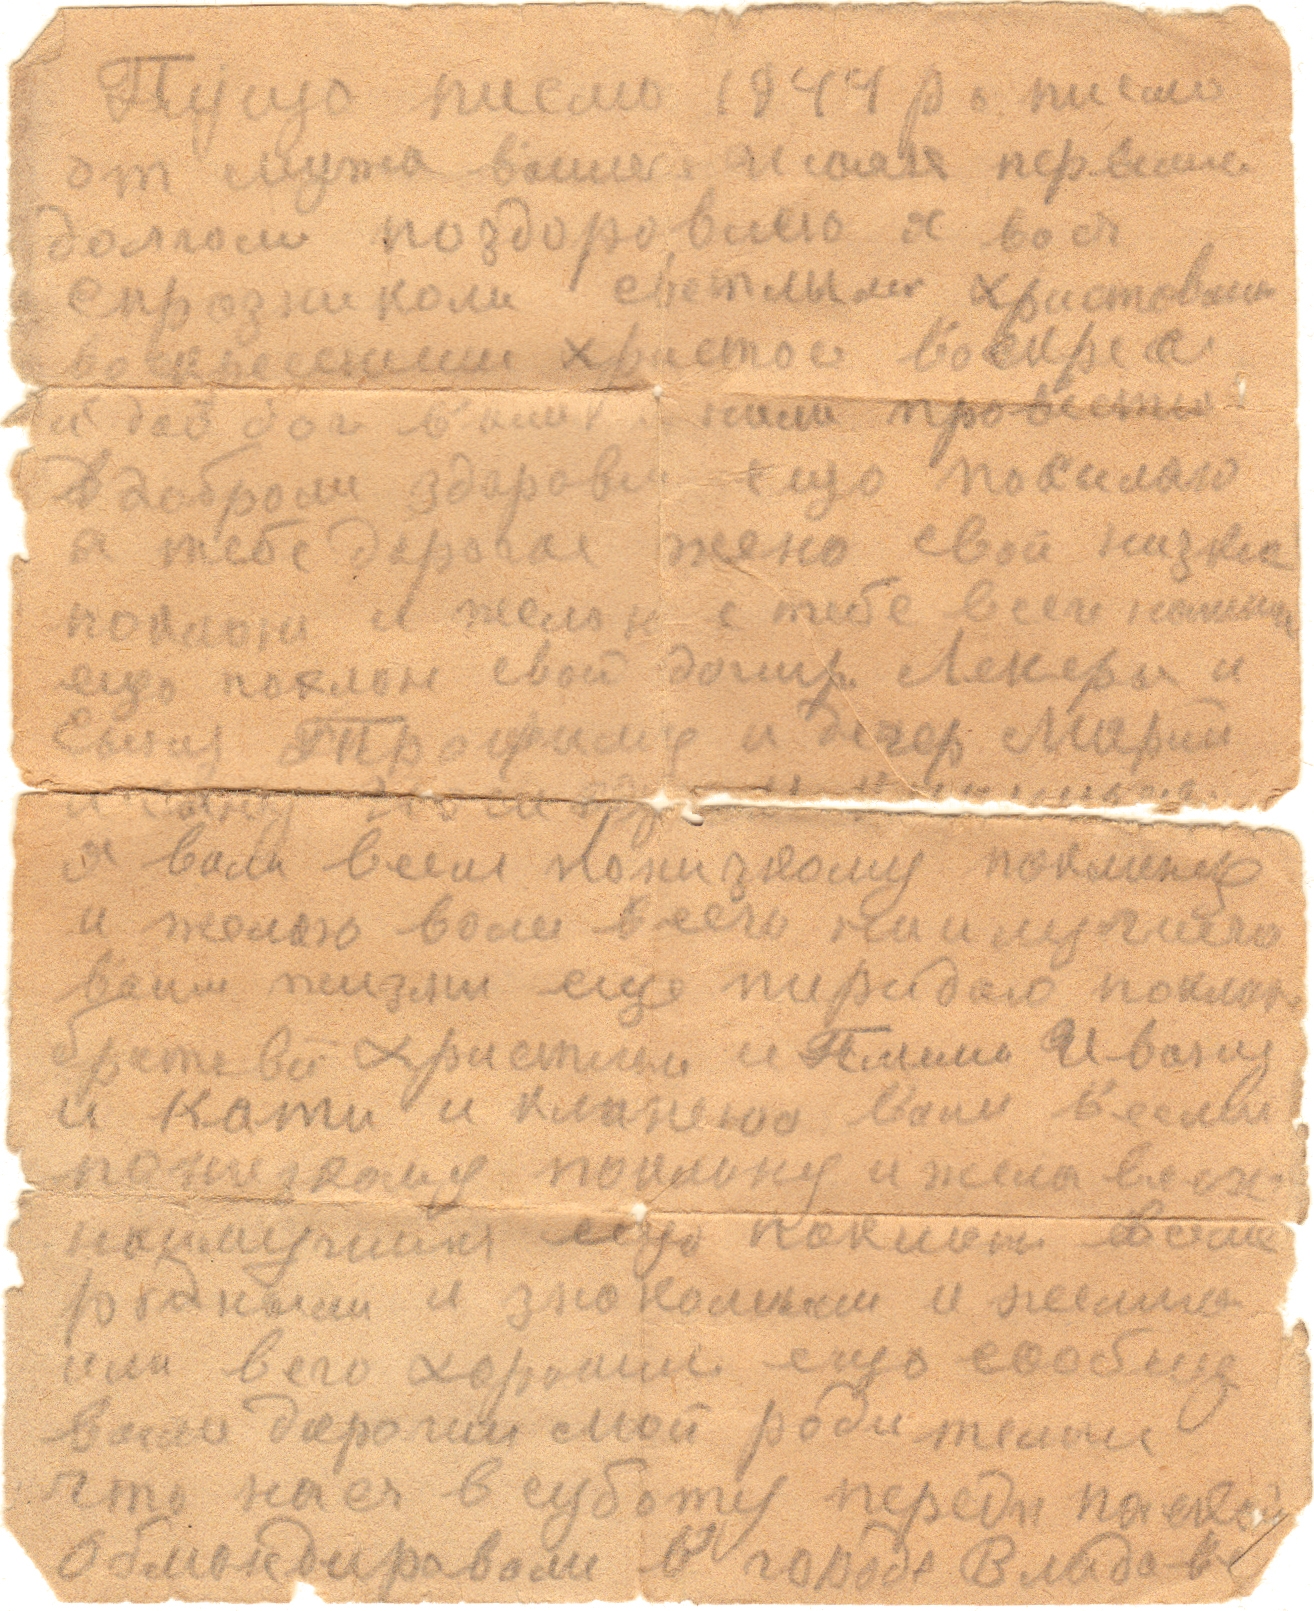 Пущо писмо 1944 р. писмо
от мужа вашего перваим
долгом поздоровляю я вас
спрозником светлым христовым
воскресением христос воскрес
и дай бог вам и нам провести
в добром здоровы ещо посилаю
я тебе дорогая жено свой низки
поклон и желаю тебе всего
ещо поклон свой дочир Лекеры и
Сыну Трофиму и дочер Марии
и сыну и
я вам всем понизкому поклону
и желаю вам всего наилучшего
ваши жизни еще пиридаю поклон
братовй христини и Ивану
и Кати и кланеюа вам всем
по низкому поклону и жела всех
наилучших ещо поклон всем
родным и знакомым и желаю
им всго хороших ещо сообщу
вам дорогии мой родители
что насч в суботу передн пасхой
обмондировали в городе Влодаве